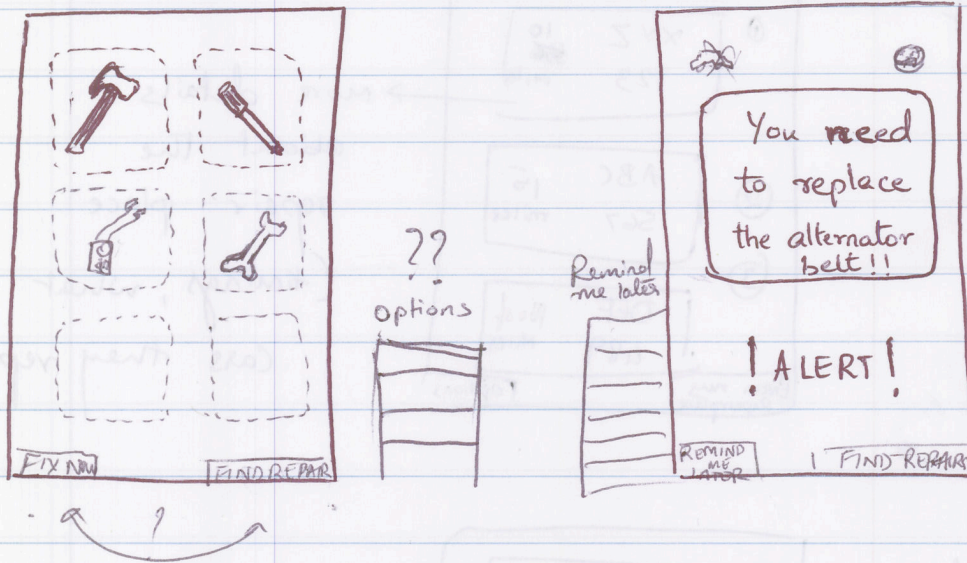 FIX NOW
FIND REPAIR
?
??
options
Remind
me later
You need
to replace
the alternator
belt!!
! ALERT !
REMIND
ME
LATER
FIND REPAIRS